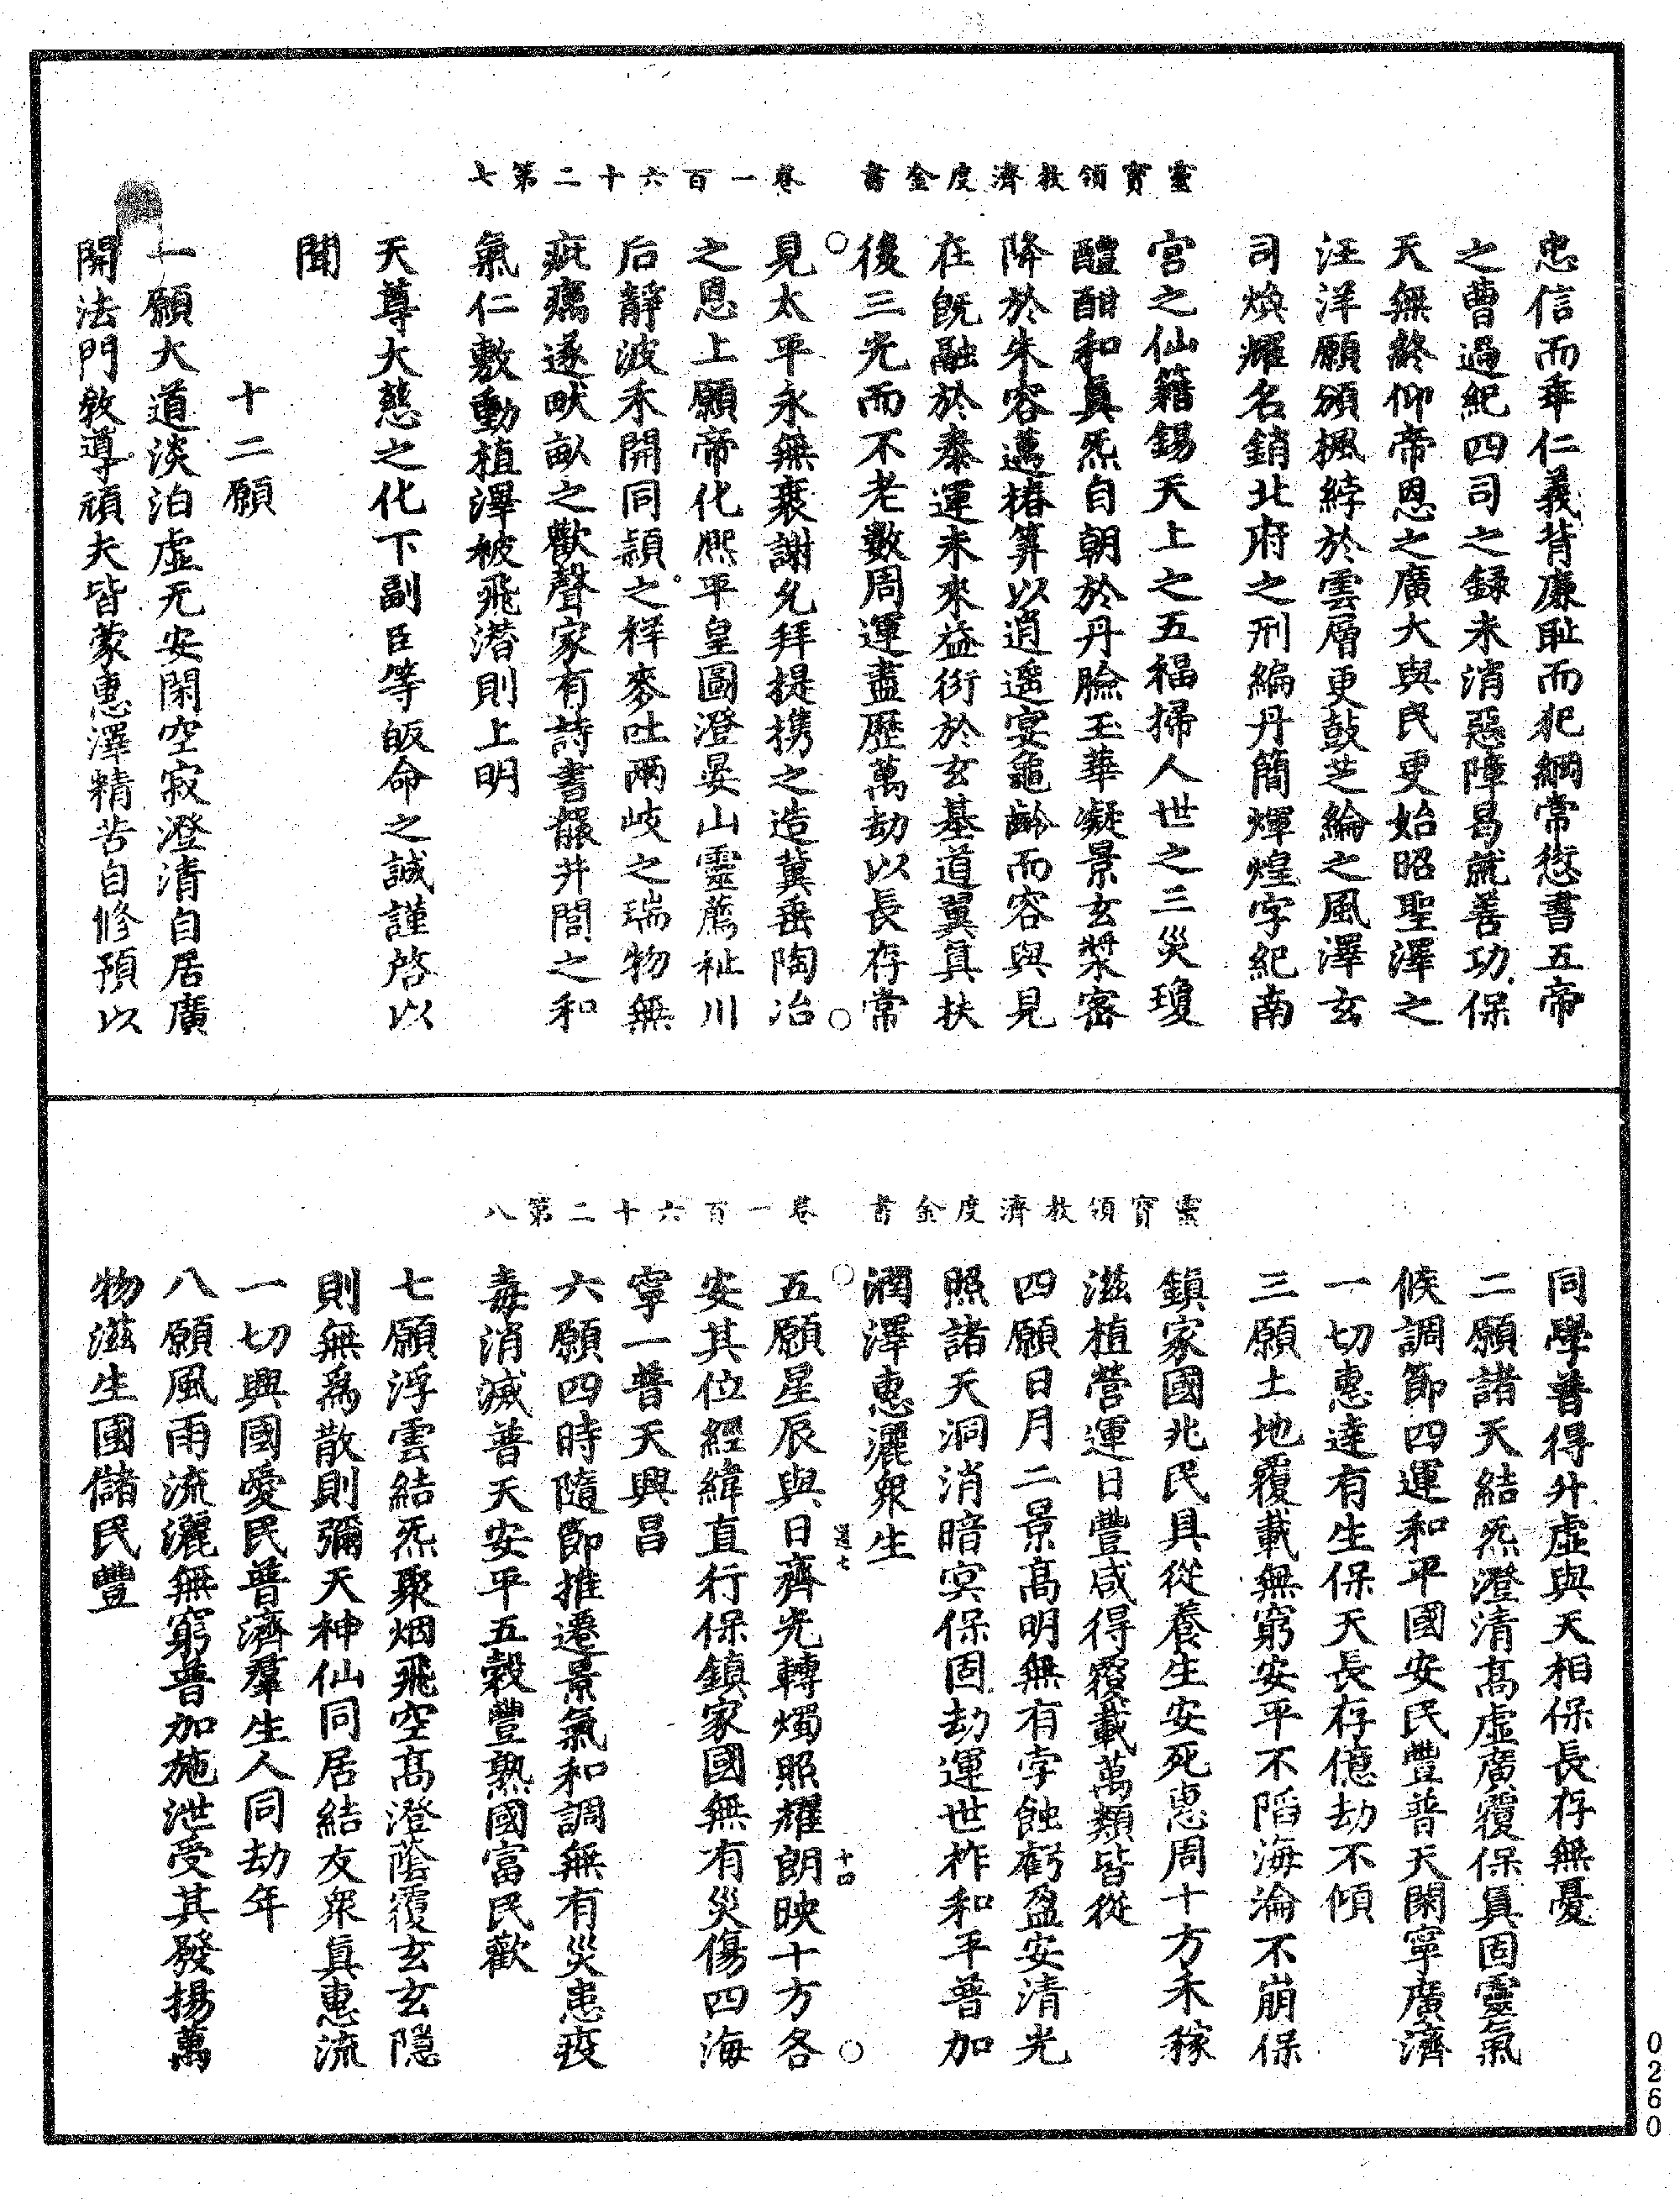 靈寶領教濟度金書　卷一百六十二第七
忠信而乖仁義背廉耻而犯綱常愆書五帝
之曹過紀四司之録未消惡障曷就善功保
天無終仰帝恩之廣大與民更始昭聖澤之
汪洋願頒楓綍於雲層更鼓芝綸之風澤玄
司煥耀名銷北府之刑編丹簡煇煌字紀南
宮之仙籍錫天上之五福掃人世之三災瓊
醴酣和真炁自朝於丹臉玉華凝景玄漿密
降於朱容邁椿筭以逍遥宴龜齡而容與見
在既融於泰運未來益衍於玄基道翼真扶
後三光而不老數周運盡歷萬劫以長存常
見太平永無衰謝允拜提携之造兾垂陶冶
之恩上願帝化熈平皇圖澄晏山靈薦祉川
后靜波禾開同頴之祥麥吐兩岐之瑞物無
疵癘遂畎畝之歡聲家有詩書釀井閭之和
氣仁敷動植澤被飛潜則上明
天尊大慈之化下副臣等皈命之誠謹啓以
聞
十二願
一願大道淡泊虚无安閑空寂澄清自居廣
開法門教導頑夫皆蒙惠澤精苦自修預以
靈寶領教濟度金書　卷一百六十二第八
同學普得升虚與天相保長存無憂
二願諸天結炁澄清髙虚廣覆保真固靈氣
候調節四運和平國安民豐普天閑寧廣濟
一切惠逹有生保天長存億劫不傾
三願土地覆載無窮安平不陷海淪不崩保
鎮家國兆民具從養生安死惠周十方禾稼
滋植營運日豐咸得覆載萬類皆從
四願日月二景髙明無有孛蝕虧盈安清光
照諸天洞消暗冥保固劫運世祚和平普加
潤澤惠灑衆生
五願星辰與日齊光轉燭照耀朗映十方各
道七　十四
安其位經緯直行保鎮家國無有災傷四海
寧一普天興昌
六願四時隨節推遷景氣和調無有災患疫
毒消滅普天安平五穀豐熟國富民歡
七願浮雲結炁聚烟飛空髙澄蔭覆玄玄隱
則無爲散則彌天神仙同居結友衆真惠流
一切興國愛民普濟羣生人同劫年
八願風雨流灑無窮普加施泄受其發揚萬
物滋生國儲民豐
0260